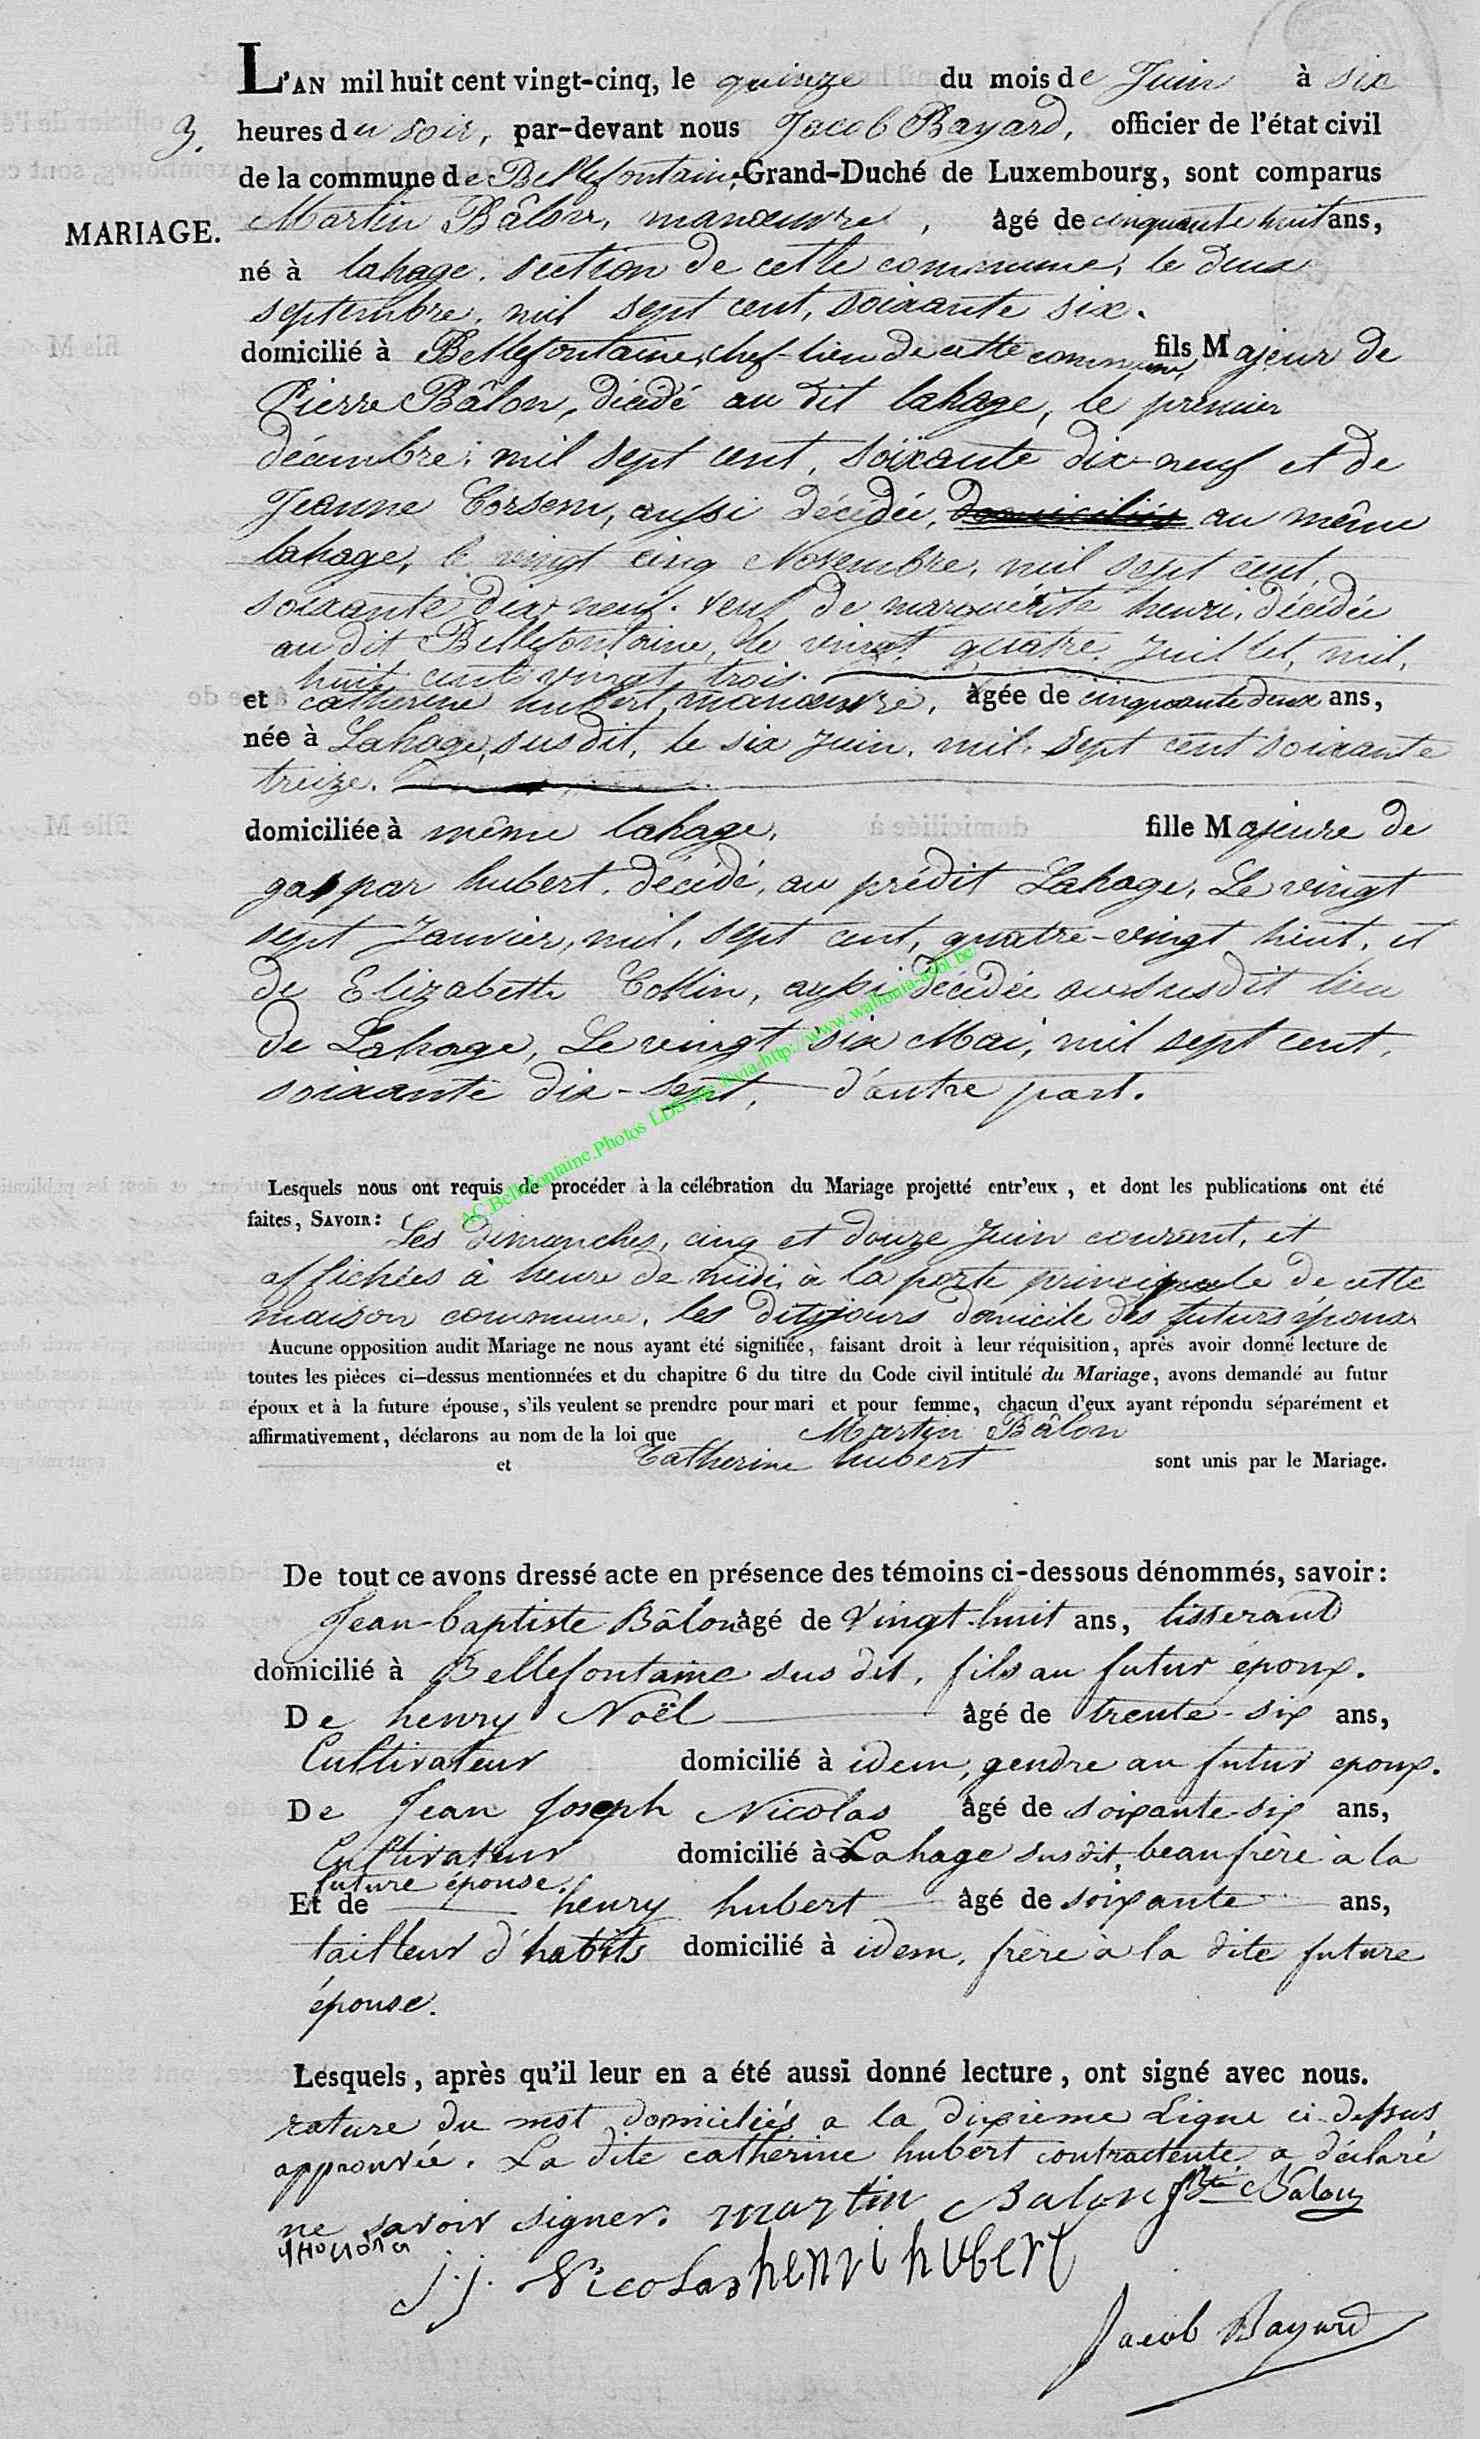 L'AN mil huit cent vingt-cinq, le quinze du mois de Juin à six
3. heures du soir, par-devant nous Jacob Bayard, officier de l'état civil
de la commune de Bellefontaine, Grand-Duché de Luxembourg, sont comparus
MARIAGE. Martin Bâlon, manœuvre, âgé de cinquante huit ans,
né à lahage, section de cette commune, le deux
septembre, mil sept cent, soixante six.
domicilié à Bellefontaine, chef-lieu de cette commune, fils Majeur de
Pierre Bâlon, décédé au dit lahage, le premier
décembre, mil sept cent, soixante dix-neuf et de
Jeanne, aussi décédée, domiciliés au même
lahage, le vingt cinq Novembre, mil sept cent,
soixante dix neuf. veuf de marguerite henri, décédée
au dit Bellefontaine, le vingt, quatre Juillet, mil,
huit cent vingt, trois.
et catherine hubert, manœuvre, âgée de cinquante deux ans,
née à Lahage, susdit, le six Juin, mil, sept cent soixante
treize.
domiciliée à même lahage, fille Majeure de
gaspar hubert, décédé, au prédit Lahage, Le vingt
sept Janvier, mil, sept cent, quatre-vingt huit, et
de Elizabeth Collin, aussi décédée au susdit lieu
de Lahage, Le vingt six Mai, mil sept cent,
soixante dix-sept, d'autre part.
AC.Bellefontaine.Photos LDS via http://www.wallonia-asbl.be
Lesquels nous ont requis de procéder à la célébration du Mariage projetté entr'eux, et dont les publications ont été
faites, SAVOIR: Les dimanches, cinq et douze Juin courant, et
affichées à heure de midi, à la porte principale de cette
maison commune, les dits jours domicile des futurs époux
Aucune opposition audit Mariage ne nous ayant été signifiée, faisant droit à leur réquisition, après avoir donné lecture de
toutes les pièces ci-dessus mentionnées et du chapitre 6 du titre du Code civil intitulé du Mariage, avons demandé au futur
époux et à la future épouse, s'ils veulent se prendre pour mari et pour femme, chacun d'eux ayant répondu séparément et
affirmativement, déclarons au nom de la loi que Martin Bâlon
et Catherine hubert sont unis par le Mariage.
De tout ce avons dressé acte en présence des témoins ci-dessous dénommés, savoir:
Jean-baptiste Bâlon âgé de Vingt-huit ans, tisserand
domicilié à Bellefontaine sus dit, fils au futur époux.
De henry Noël âgé de trente-six ans,
Cultivateur domicilié à idem, gendre au futur epoux.
De Jean Joseph Nicolas âgé de soixante-six ans,
Cultivateur domicilié à Lahage susdit, beau frère à la
future épouse.
Et de henry hubert âgé de soixante ans,
tailleur d'habits domicilié à idem, frère à la dite future
épouse.
Lesquels, après qu'il leur en a été aussi donné lecture, ont signé avec nous.
rature du mot domiciliés a la dixième Ligne ci-dessus
approuvée. La dite catherine hubert contractente a déclaré
ne savoir signer. martin Balon Bte Balon
j.j. Nicolas henri hubert
Jacob Bayard